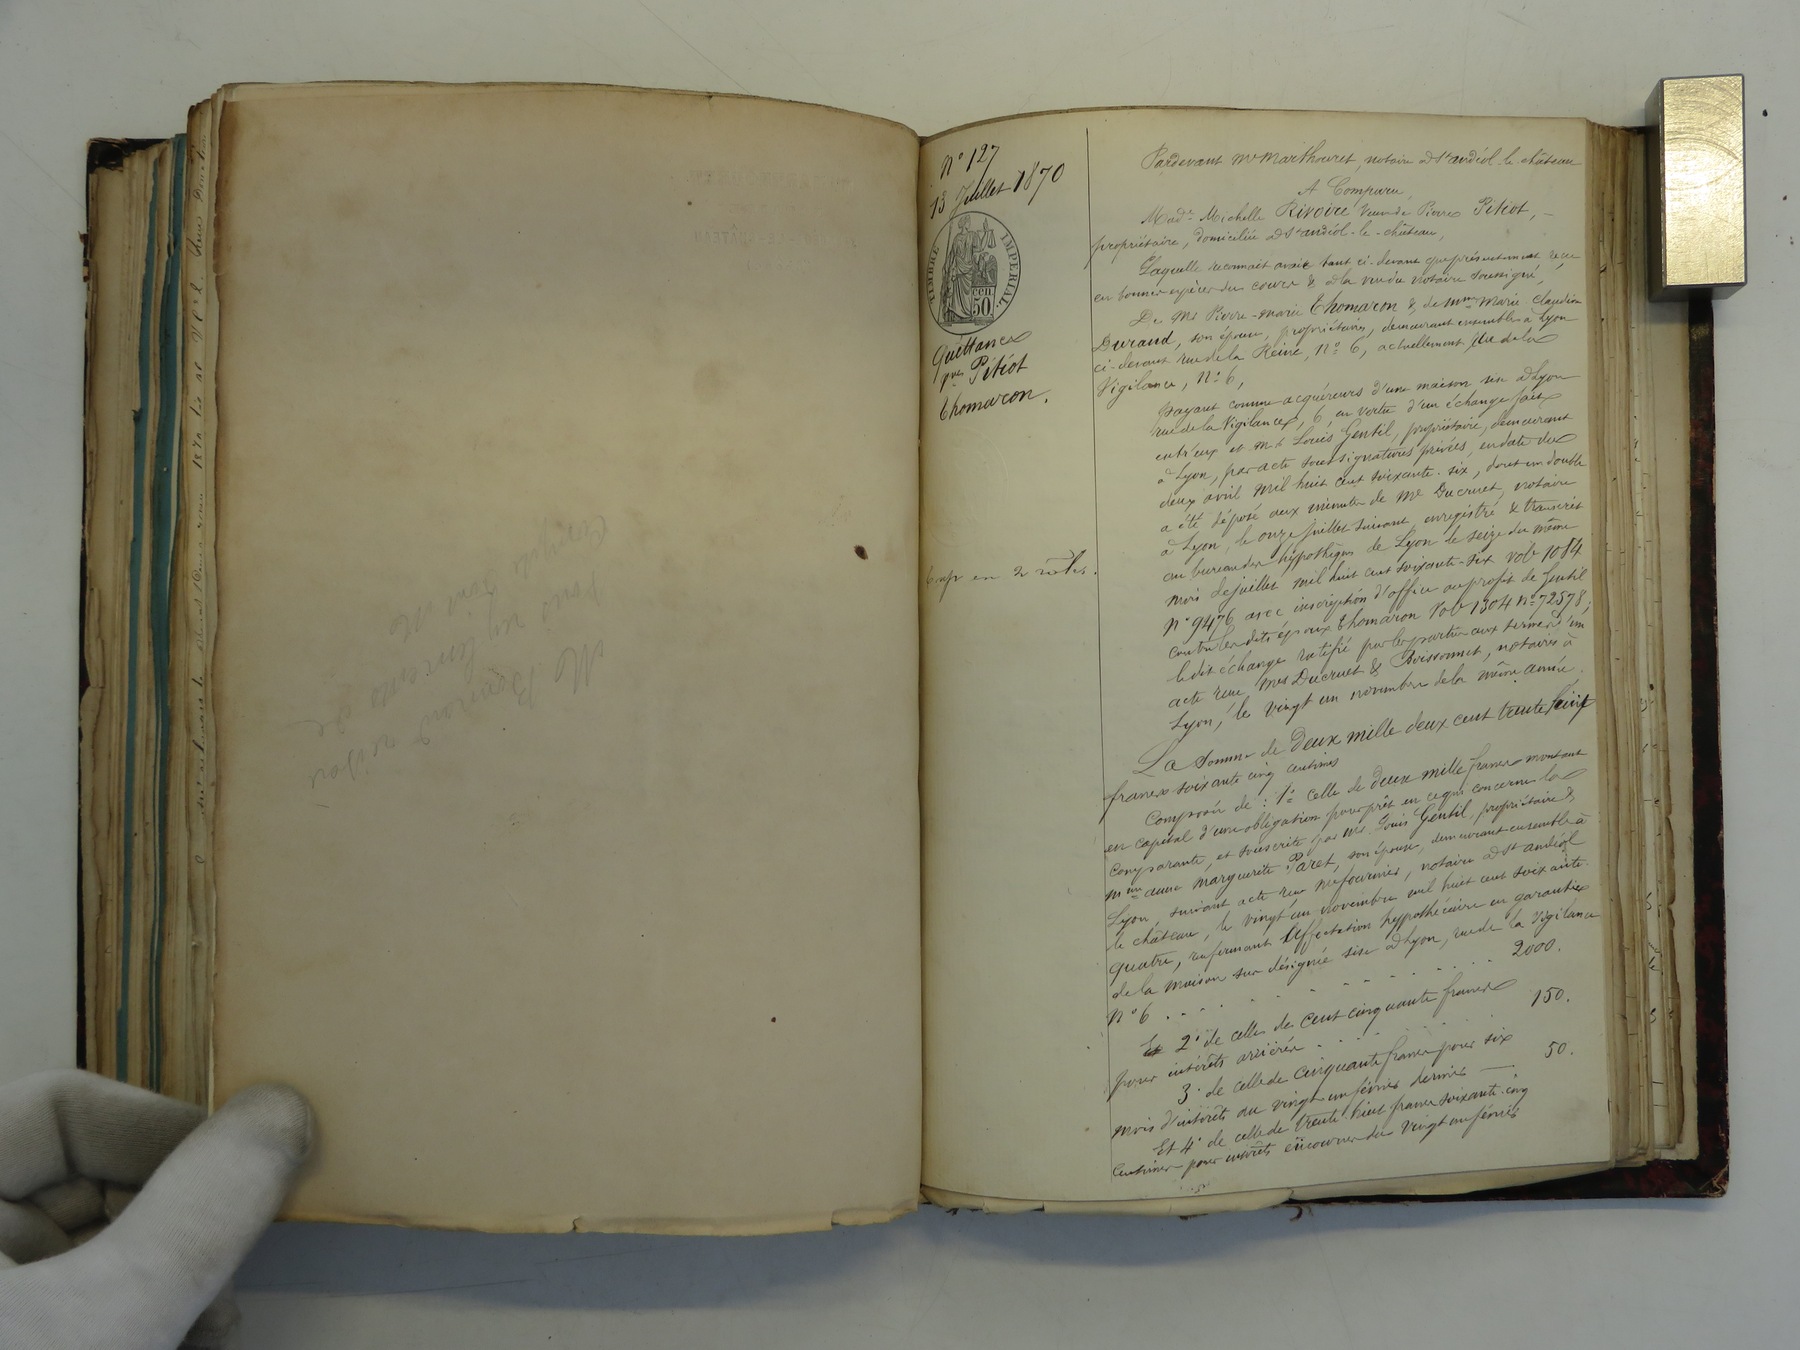 N° 127
13 Juillet 1870
TIMBRE IMPERIAL
cen. 50
Quittance
Pitiot
Thomaron.
Exp en 2 rôles.
Pardevant Me Marthouret, notaire à St andéol-le-château
A Comparu,
Made Michelle Rivoire veuve de Pierre Pitiot,
propriétaire, domiciliée à St andéol-le-château,
Laquelle reconnait avoir tant ci-devant que présentement reçu
en bonnes espèces du cours & à la vue du notaire soussigné,
De Mr Pierre-marie Thomaron & de Mme Marie Claudine
Durand, son épouse, propriétaires, demeurant ensemble à Lyon
ci-devant rue de la Reine, N° 6, actuellement rue de la
Vigilance, N° 6,
payant comme acquéreurs d'une maison sise à Lyon
rue de la Vigilance, 6, en vertu d'un échange fait
entr'eux et Mr Louis Gentil, propriétaire, demeurant
à Lyon, par acte sous signatures privées, en date du
deux avril mil huit cent soixante-six, dont un double
a été déposé aux minutes de Me Ducruet, notaire
à Lyon, le onze juillet suivant enregistré & transcrit
au bureau des hypothèques de Lyon le seize du même
mois de juillet mil huit cent soixante-six vol 1084
N° 9476 avec inscription d'office au profit de Gentil
contre les dits époux Thomaron Vol 1304 N° 72578;
le dit échange ratifié par les parties aux termes d'un
acte reçu Mes Ducruet & Boissonnet, notaires à
Lyon, le vingt un novembre de la même année.
La Somme de Deux mille deux cent trente huit
francs soixante cinq centimes
Composée de : 1° celle de deux mille francs montant
en capital d'une obligation pour prêt en ce qui concerne la
comparante, et souscrite par Mr Louis Gentil, propriétaire &
Mme anne Marguerite Paret, son épouse, demeurant ensemble à
Lyon, suivant acte reçu Me fournier, notaire à St andéol
le château, le vingt un novembre mil huit cent soixante-
quatre, renfermant affectation hypothécaire en garantie
de la maison sus désignée sise à Lyon, rue de la Vigilance
N° 6 . . . . . . . . . . . 2000.
2° de celle de Cent cinquante francs
pour intérêts arriérés . . . . . . 150.
3° de celle de Cinquante francs pour six
mois d'intérêts au vingt un février dernier — 50.
Et 4° de celle de trente-huit francs soixante-cinq
Centimes pour intérêts en cours du vingt un février